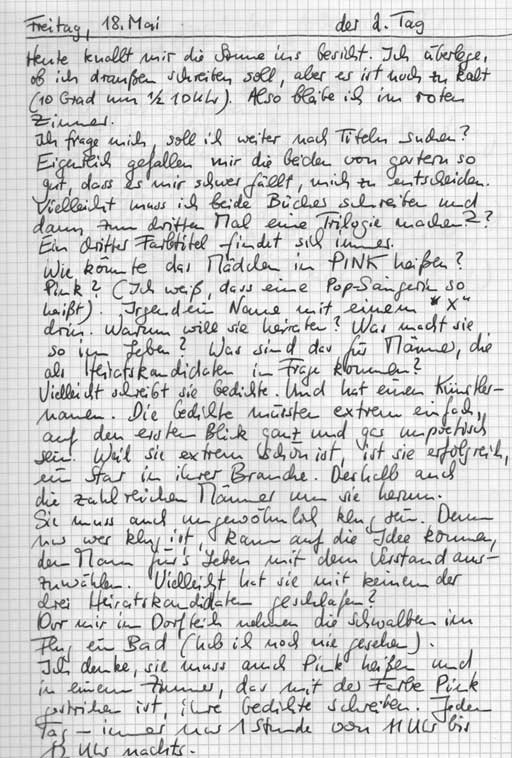 Freitag, 18. Mai der 2. Tag
Heute knallt mir die Sonne ins Gesicht. Ich überlege,
ob ich draußen schreiben soll, aber es ist noch zu kalt
(10 Grad um 1/2 10 Uhr). Also bleibe ich im roten
Zimmer.
Ich frage mich, soll ich weiter nach Titeln suchen?
Eigentlich gefallen mir die beiden von gestern so
gut, dass es mir schwer fällt, mich zu entscheiden.
Vielleicht muss ich beide Bücher schreiben und
dann zum dritten Mal eine Trilogie machen?
Ein drittes Farbtitel findet sich immer.
Wie könnte das Mädchen in PINK heißen?
Pink? (Ich weiß, dass eine Pop-Sängerin so
heißt). Irgendein Name mit einem "X"
drin. Warum will sie heiraten? Was macht sie
so im Leben? Was sind das für Männer, die
als Heiratskandidaten in Frage kommen?
Vielleicht schreibt sie Gedichte. Und hat einen Künstler-
namen. Die Gedichte müssten extrem einfach,
auf den ersten Blick ganz und gar unpoetisch
sein. Weil sie extrem schön ist, ist sie erfolgreich,
ein Star in ihrer Branche. Deshalb auch
die zahlreichen Männer um sie herum.
Sie muss auch ungewöhnlich klug sein. Denn
nur wer klug ist, kann auf die Idee kommen,
den Mann für's Leben mit dem Verstand aus-
zuwählen. Vielleicht hat sie mit keinem der
drei Heiratskandidaten geschlafen?
Vor mir im Dorfteich nehmen die Schwalben im
Flug ein Bad (hab ich noch nie gesehen).
Ich denke, sie muss auch Pink heißen und
in einem Zimmer, das mit der Farbe Pink
gestrichen ist, ihre Gedichte schreiben. Jeden
Tag – immer nur 1 Stunde von 11 Uhr bis
12 Uhr nachts.